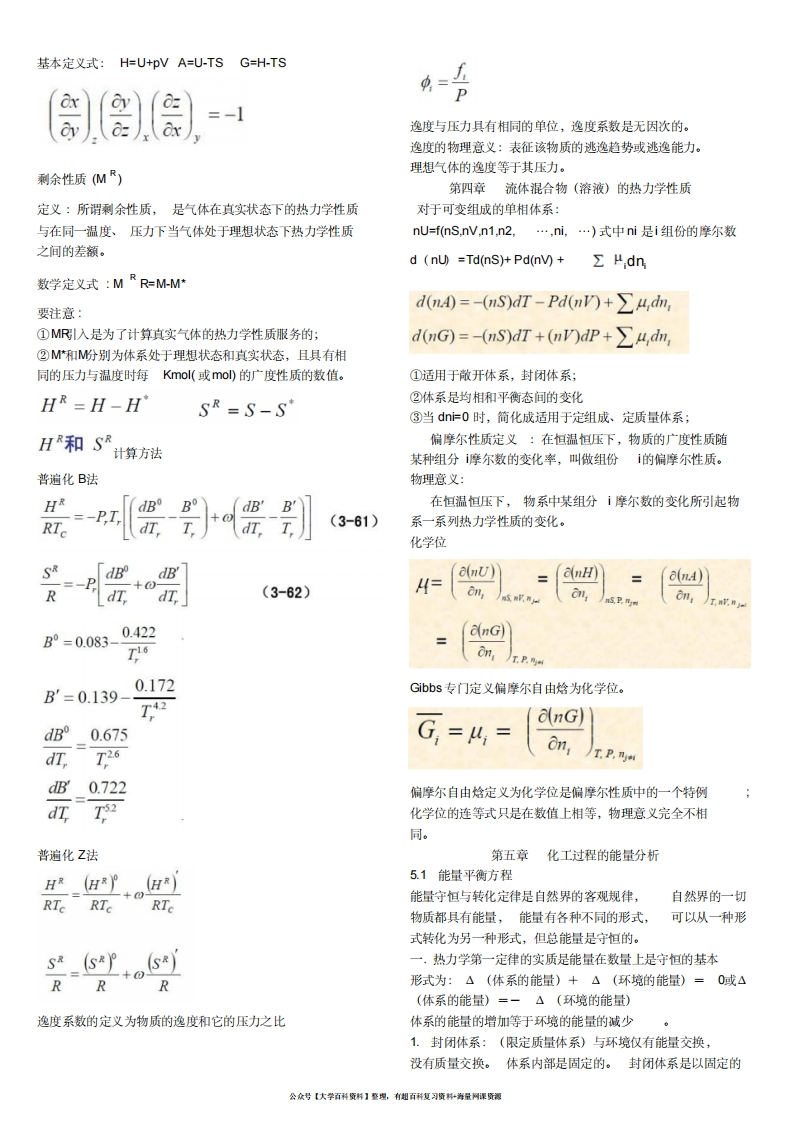 基本定义式： H=U+pV A=U-TS G=H-TS
(∂x/∂y)_z (∂y/∂z)_x (∂z/∂x)_y = -1
剩余性质 (M^R)
定义：所谓剩余性质， 是气体在真实状态下的热力学性质
与在同一温度、 压力下当气体处于理想状态下热力学性质
之间的差额。
数学定义式 ：M^R R=M-M*
要注意：
①MR引入是为了计算真实气体的热力学性质服务的；
②M*和M分别为体系处于理想状态和真实状态，且具有相
同的压力与温度时每 Kmol( 或mol) 的广度性质的数值。
H^R = H - H^* S^R = S - S^*
H^R和 S^R 计算方法
普遍化 B法
H^R/RT_C = -P_rT_r[(dB^0/dT_r - B^0/T_r) + ω(dB′/dT_r - B′/T_r)] （3-61）
S^R/R = -P_r[dB^0/dT_r + ω dB′/dT_r] （3-62）
B^0 = 0.083 - 0.422/T_r^1.6
B′ = 0.139 - 0.172/T_r^4.2
dB^0/dT_r = 0.675/T_r^2.6
dB′/dT_r = 0.722/T_r^5.2
普遍化 Z法
H^R/RT_C = (H^R)^0/RT_C + ω (H^R)′/RT_C
S^R/R = (S^R)^0/R + ω (S^R)′/R
逸度系数的定义为物质的逸度和它的压力之比
ϕ_i = f_i/P
逸度与压力具有相同的单位，逸度系数是无因次的。
逸度的物理意义：表征该物质的逃逸趋势或逃逸能力。
理想气体的逸度等于其压力。
第四章 流体混合物（溶液）的热力学性质
对于可变组成的单相体系：
nU=f(nS,nV,n1,n2, …,ni, …) 式中 ni 是 i 组份的摩尔数
d（nU）=Td(nS)+ Pd(nV) + ∑ μ_idn_i
d(nA) = -(nS)dT - Pd(nV) + ∑μ_idn_i
d(nG) = -(nS)dT + (nV)dP + ∑μ_idn_i
①适用于敞开体系，封闭体系；
②体系是均相和平衡态间的变化
③当 dni=0 时，简化成适用于定组成、定质量体系；
偏摩尔性质定义 ：在恒温恒压下，物质的广度性质随
某种组分 i摩尔数的变化率，叫做组份 i的偏摩尔性质。
物理意义：
在恒温恒压下， 物系中某组分 i 摩尔数的变化所引起物
系一系列热力学性质的变化。
化学位
μ= (∂(nU)/∂n_i)_nS, nV, n_j≠i = (∂(nH)/∂n_i)_nS, P, n_j≠i = (∂(nA)/∂n_i)_T, nV, n_j≠i
= (∂(nG)/∂n_i)_T, P, n_j≠i
Gibbs 专门定义偏摩尔自由焓为化学位。
G̅_i = μ_i = (∂(nG)/∂n_i)_T, P, n_j≠i
偏摩尔自由焓定义为化学位是偏摩尔性质中的一个特例 ；
化学位的连等式只是在数值上相等，物理意义完全不相
同。
第五章 化工过程的能量分析
5.1 能量平衡方程
能量守恒与转化定律是自然界的客观规律， 自然界的一切
物质都具有能量， 能量有各种不同的形式， 可以从一种形
式转化为另一种形式，但总能量是守恒的。
一．热力学第一定律的实质是能量在数量上是守恒的基本
形式为： Δ （体系的能量）＋ Δ （环境的能量）＝ 0或Δ
（体系的能量）＝－ Δ （环境的能量）
体系的能量的增加等于环境的能量的减少 。
1. 封闭体系：（限定质量体系）与环境仅有能量交换，
没有质量交换。 体系内部是固定的。 封闭体系是以固定的
公众号【大学百科资料】整理，有超百科复习资料+海量网课资源